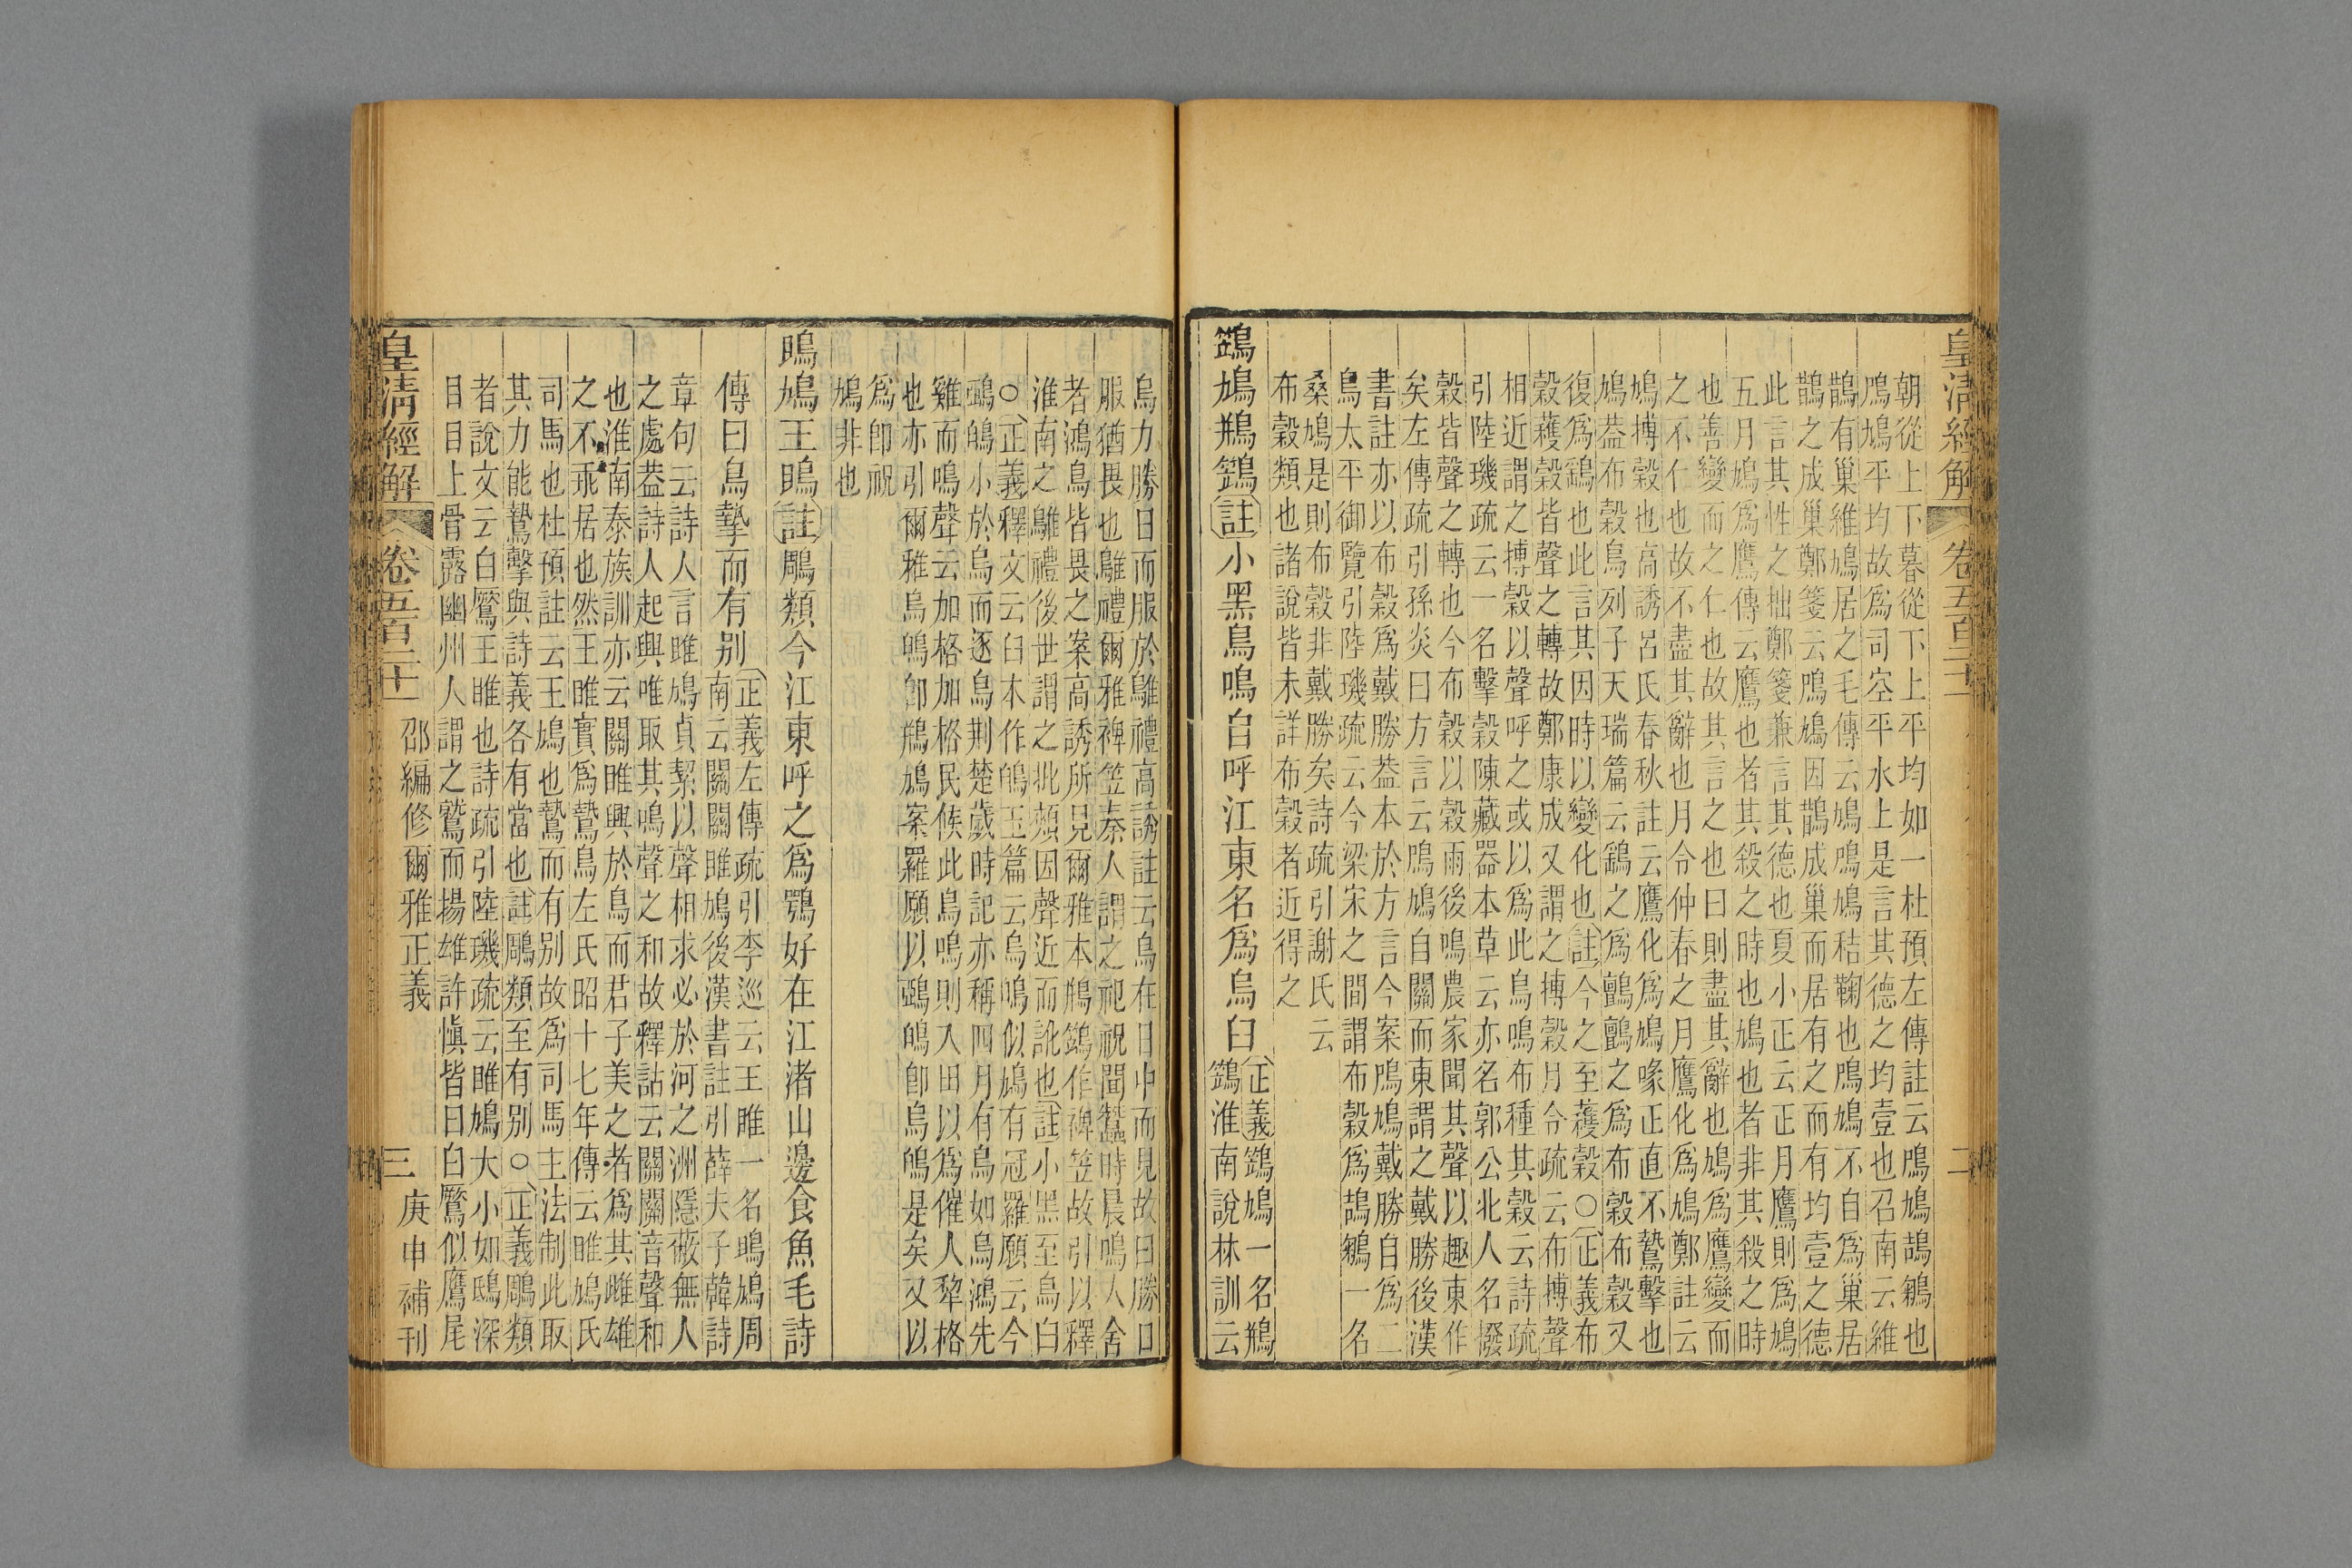 皇清經解 卷五百二十一 二
朝從上下暮從下上平均如一杜預左傳註云鳲鳩鴶鵴也
鳲鳩平均故爲司空平水上是言其德之均壹也召南云維
鵲有巢維鳩居之毛傳云鳩鳲鳩秸鞠也鳲鳩不自爲巢居
鵲之成巢鄭箋云鳲鳩因鵲成巢而居有之而有均壹之德
此言其性之拙鄭箋兼言其德也夏小正云正月鷹則爲鳩
五月鳩爲鷹傳云鷹也者其殺之時也鳩也者非其殺之時
也善變而之仁也故其言之也曰則盡其辭也鳩爲鷹變而
之不仁也故不盡其辭也月令仲春之月鷹化爲鳩鄭註云
鳩搏穀也高誘呂氏春秋註云鷹化爲鳩喙正直不鷙擊也
鳩葢布穀鳥列子天瑞篇云鷂之爲鸇鸇之爲布穀布穀又
復爲鷂也此言其因時以變化也註今之至蠖穀○正義布
穀蠖穀皆聲之轉故鄭康成又謂之搏穀月令疏云布搏聲
相近謂之搏穀以聲呼之或以爲此鳥鳴布種其穀云詩疏
引陸璣疏云一名擊穀陳藏器本草云亦名郭公北人名撥
穀皆聲之轉也今布穀以穀雨後鳴農家聞其聲以趣東作
矣左傳疏引孫炎曰方言云鳲鳩自關而東謂之戴勝後漢
書註亦以布穀爲戴勝葢本於方言今案鳲鳩戴勝自爲二
鳥太平御覽引陸璣疏云今梁宋之間謂布穀爲鴶鵴一名
桑鳩是則布穀非戴勝矣詩疏引謝氏云
布穀類也諸說皆未詳布穀者近得之
鷑鳩鵧鷑註小黑鳥鳴自呼江東名爲烏臼
正義鷑鳩一名鵧
鷑淮南說林訓云
烏力勝日而服於鵻禮高誘註云烏在日中而見故曰勝日
服猶畏也鵻禮爾雅裨笠秦人謂之祀祝間蠶時晨鳴人舍
者鴻鳥皆畏之案高誘所見爾雅本鵧鷑作裨笠故引以釋
淮南之鵻禮後世謂之批頰因聲近而訛也註小黑至烏臼
○正義釋文云臼本作鴭玉篇云烏鴭似鳩有冠羅願云今
鵶鴭小於烏而逐烏荆楚歲時記亦稱四月有鳥如烏鴻先
雞而鳴聲云加格加格民候此鳥鳴則入田以爲催人犂格
也亦引爾雅烏鴭卽鵧鳩案羅願以鵶鴭卽烏鴭是矣又以
爲卽祝
鳩非也
鴡鳩王鴡註鵰類今江東呼之爲鶚好在江渚山邊食魚毛詩
傳曰鳥摯而有别
正義左傳疏引李巡云王雎一名鴡鳩周
南云關關雎鳩後漢書註引薛夫子韓詩
章句云詩人言雎鳩貞絜以聲相求必於河之洲隱蔽無人
之處葢詩人起興唯取其鳴聲之和故釋詁云關關音聲和
也淮南泰族訓亦云關雎興於鳥而君子美之者爲其雌雄
之不乖居也然王雎實爲鷙鳥左氏昭十七年傳云雎鳩氏
司馬也杜預註云王鳩也鷙而有别故爲司馬主法制此取
其力能鷙擊與詩義各有當也註鵰類至有别○正義鵰類
者說文云白鷢王雎也詩疏引陸璣疏云雎鳩大小如鴟深
目目上骨露幽州人謂之鷲而揚雄許愼皆曰白鷢似鷹尾
皇清經解 卷五百二十一 邵編修爾雅正義 三 庚申補刊